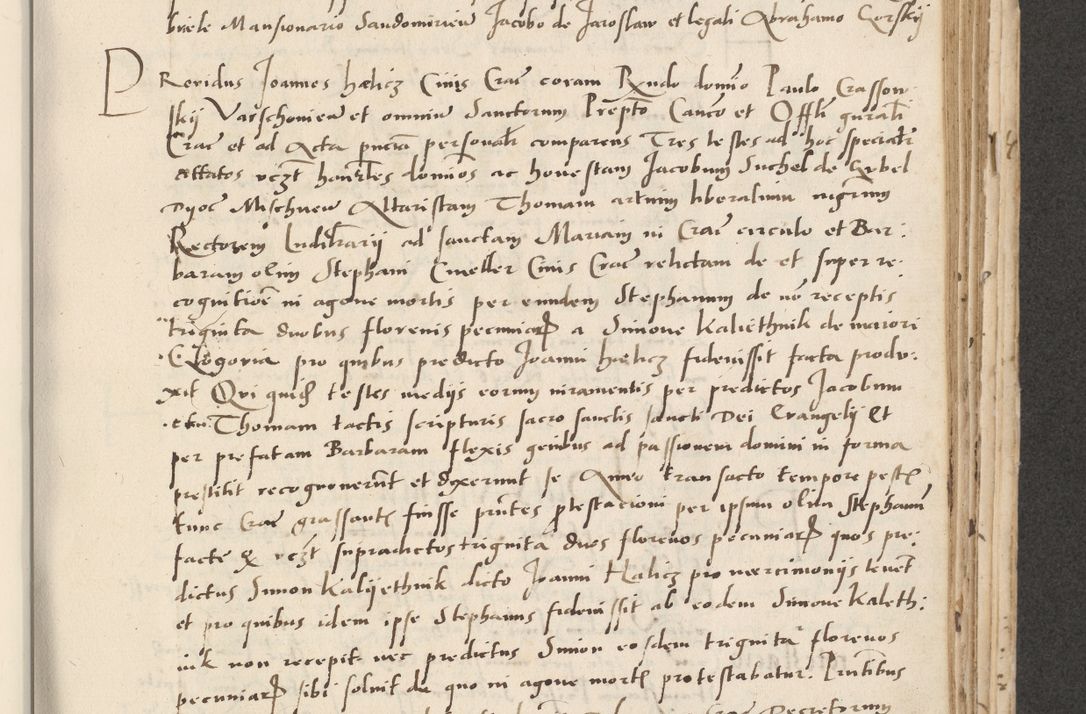 briele Mansionario Sandomirien̄ Jacobo de Jaroslaw et legali Abrahamo Gorskij
PRovidus Joannes hælicz Civis Crac̄ coram Rṇdo domiō Paulo Crasson
skij Varschovien̄ et omnium Sanctorum Prepto Canco et Offli gnrali
Crac̄ et ad Acta pn̄cia personalr comparens Tres testes ad hoc specialr
affatos vczt honrles domios ac honestam Jacobum Suchel de
Dyoc Mischnen̄ Altaristam Thomam artium liberalium nigrinum
Rectorem Ludilrarij ad sanctam Mariam in Crac̄ circulo et Bar:
baram olim Stephani Cmeller Civis Crac̄ relictam de et super re:
cognitiōe in agone mortis per eundem Stephanum de nō receptis
triginta duobus florenis pecuniarꝝ a Simone Kaliethnik de maiori
Clogovia pro quibus predicto Joanni hælicz fideiussit facta produ:
xit Qvi quid testes medijs eorum iuramentis per predictos Jacobum
et Thomam tactis scripturis sacro sanctis sancti Dei Evangelij Et
per prefatam Barbaram flexis genibus ad passionem domini in forma
prestitit recognoverūt et dixerunt se Anno transacto tempore pestis
tunc Crac̄ grassantis fuisse pn̄tes protestacioni per ipsum olim Stephanū
facte & vczt supradictos triginta duos florenos pecuniarꝝ quos pre:
dictus Simon Kalijethnik dicto Joanni Halicz pro mercimonijs tenet
et pro quibus idem ipse Stephanus fideiussit ab eodem Simone Kaleth:
nik non recepit nec predictus Simon eosdem triginta florenos
pecuniarꝝ sibi soluit de quo in agone mortis protestabatur. Prntibus
Decretorum